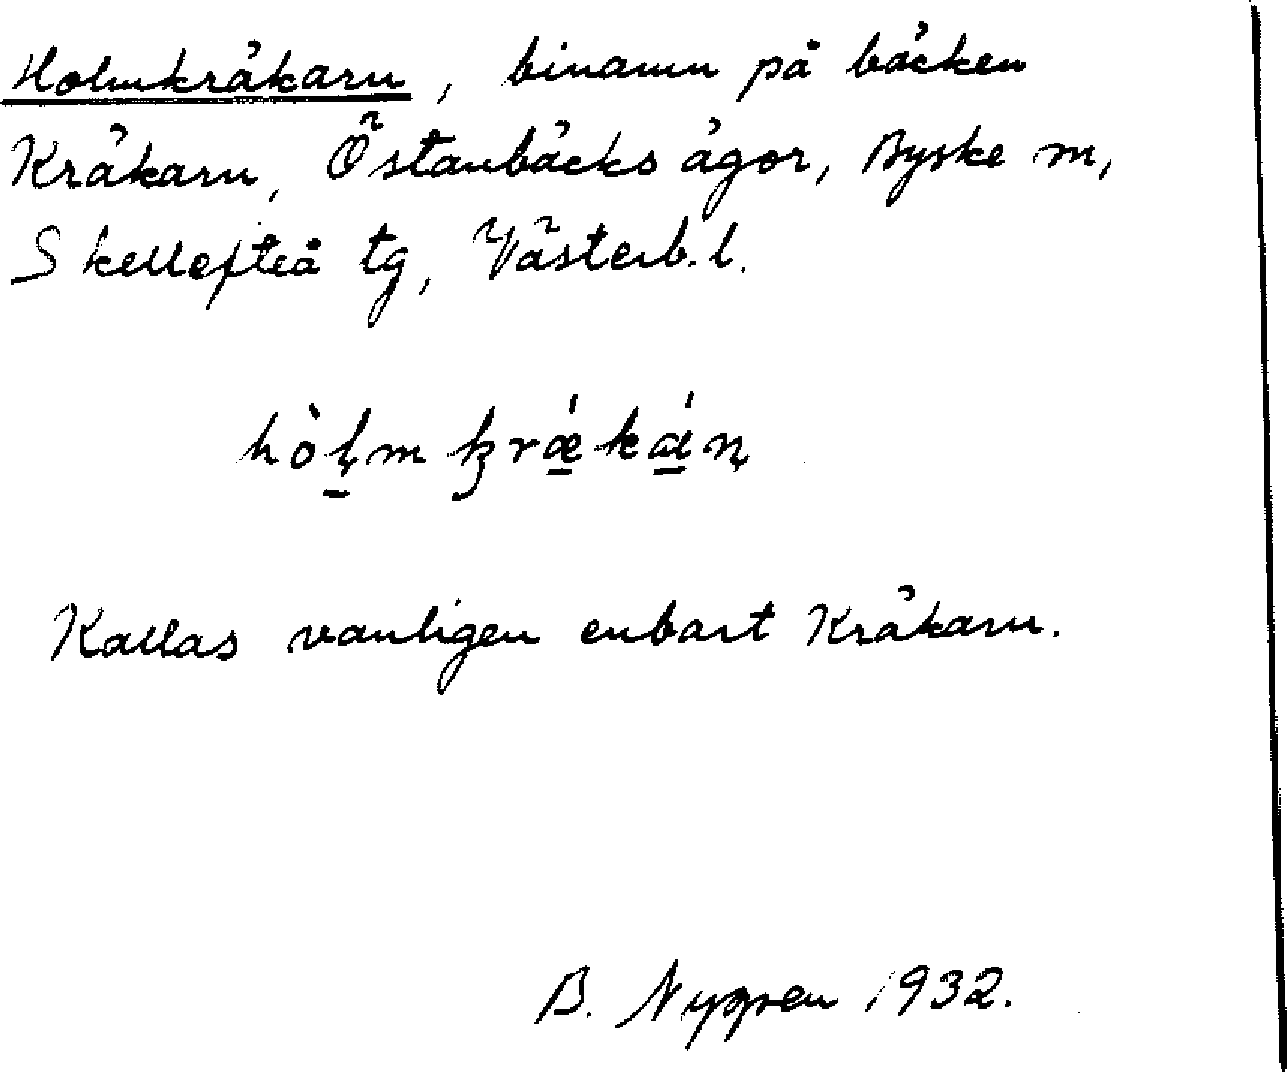 Holmkräkarn, binamn på bäcken
Kräkarn, Östanbäcks ägor, Byske sn,
Skellefteå tg, Västerb. l.
Kallas vanligen enbart Kräkarn.
B. Nygren 1932.